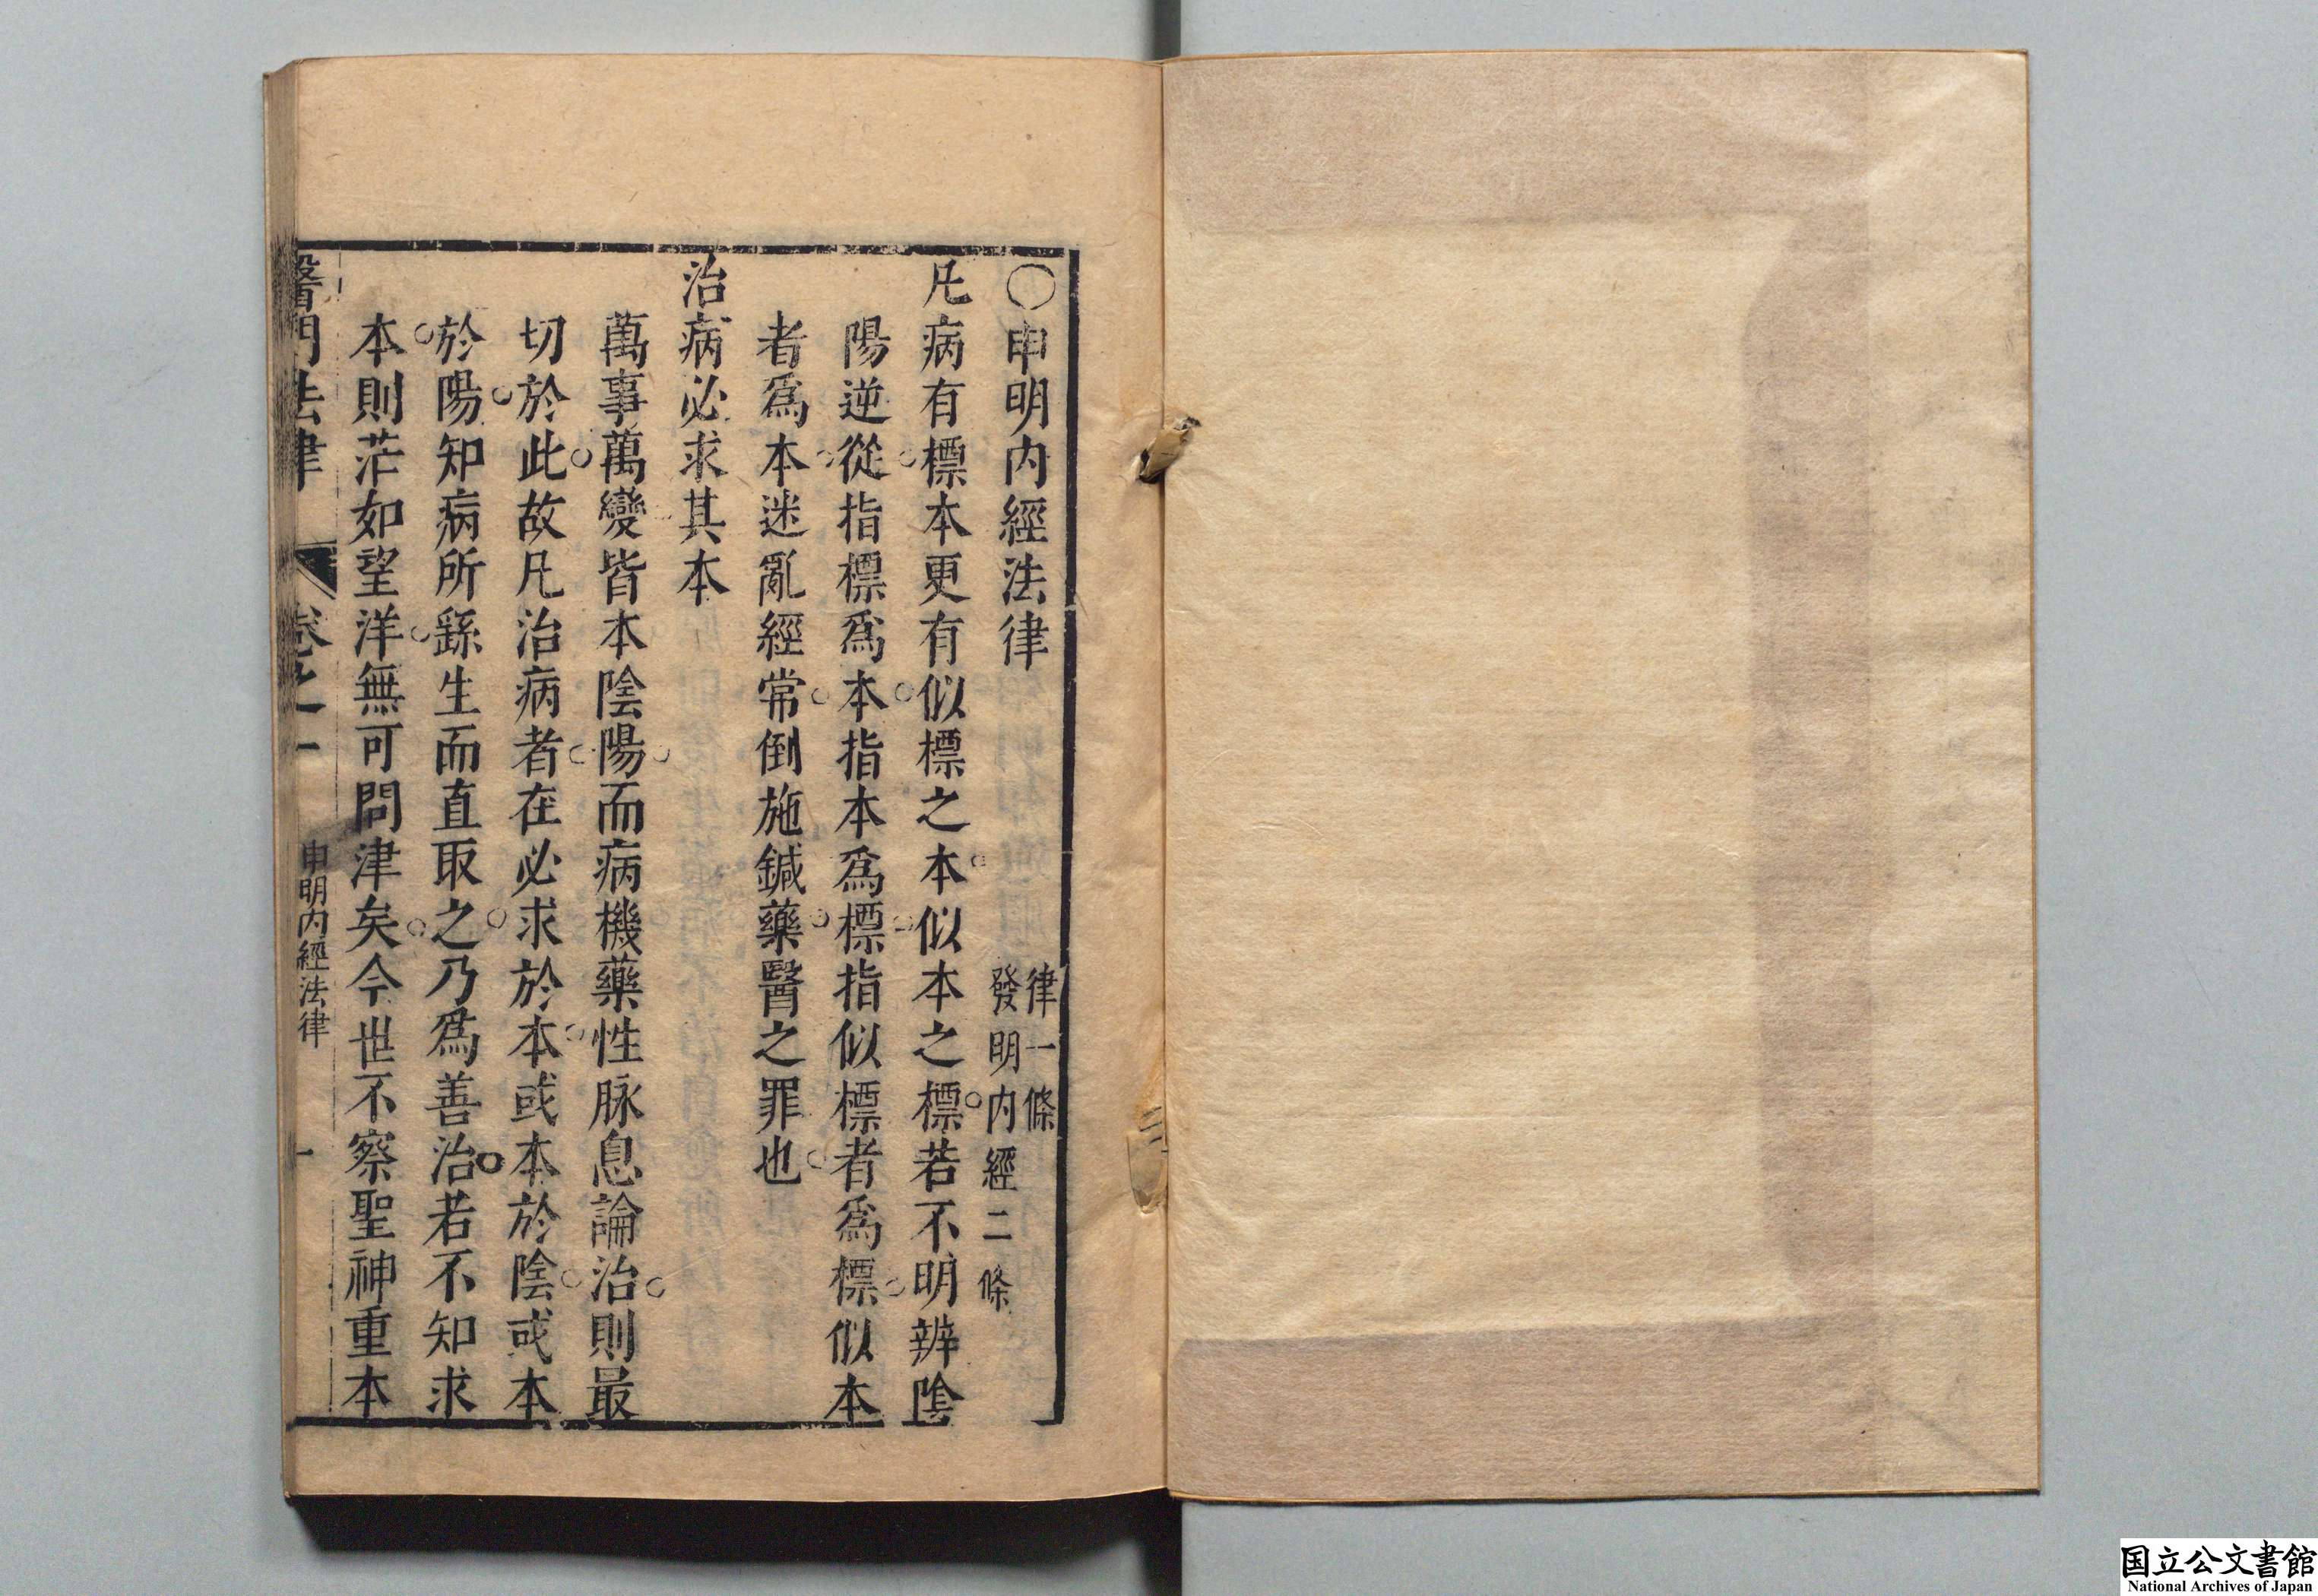 ○申明内經法律
律一條
發明内經二條
凡病有標本更有似標之本似本之標若不明辨陰
陽逆從指標爲本指本爲標指似標者爲標似本
者爲本迷亂經常倒施鍼藥醫之罪也
治病必求其本
萬事萬變皆本陰陽而病機藥性脉息論治則最
切於此故凡治病者在必求於本或本於陰或本
於陽知病所繇生而直取之乃爲善治若不知求
本則茫如望洋無可問津矣今世不察聖神重本
醫門法律 卷之一 申明内經法律 一
国立公文書館
National Archives of Japan